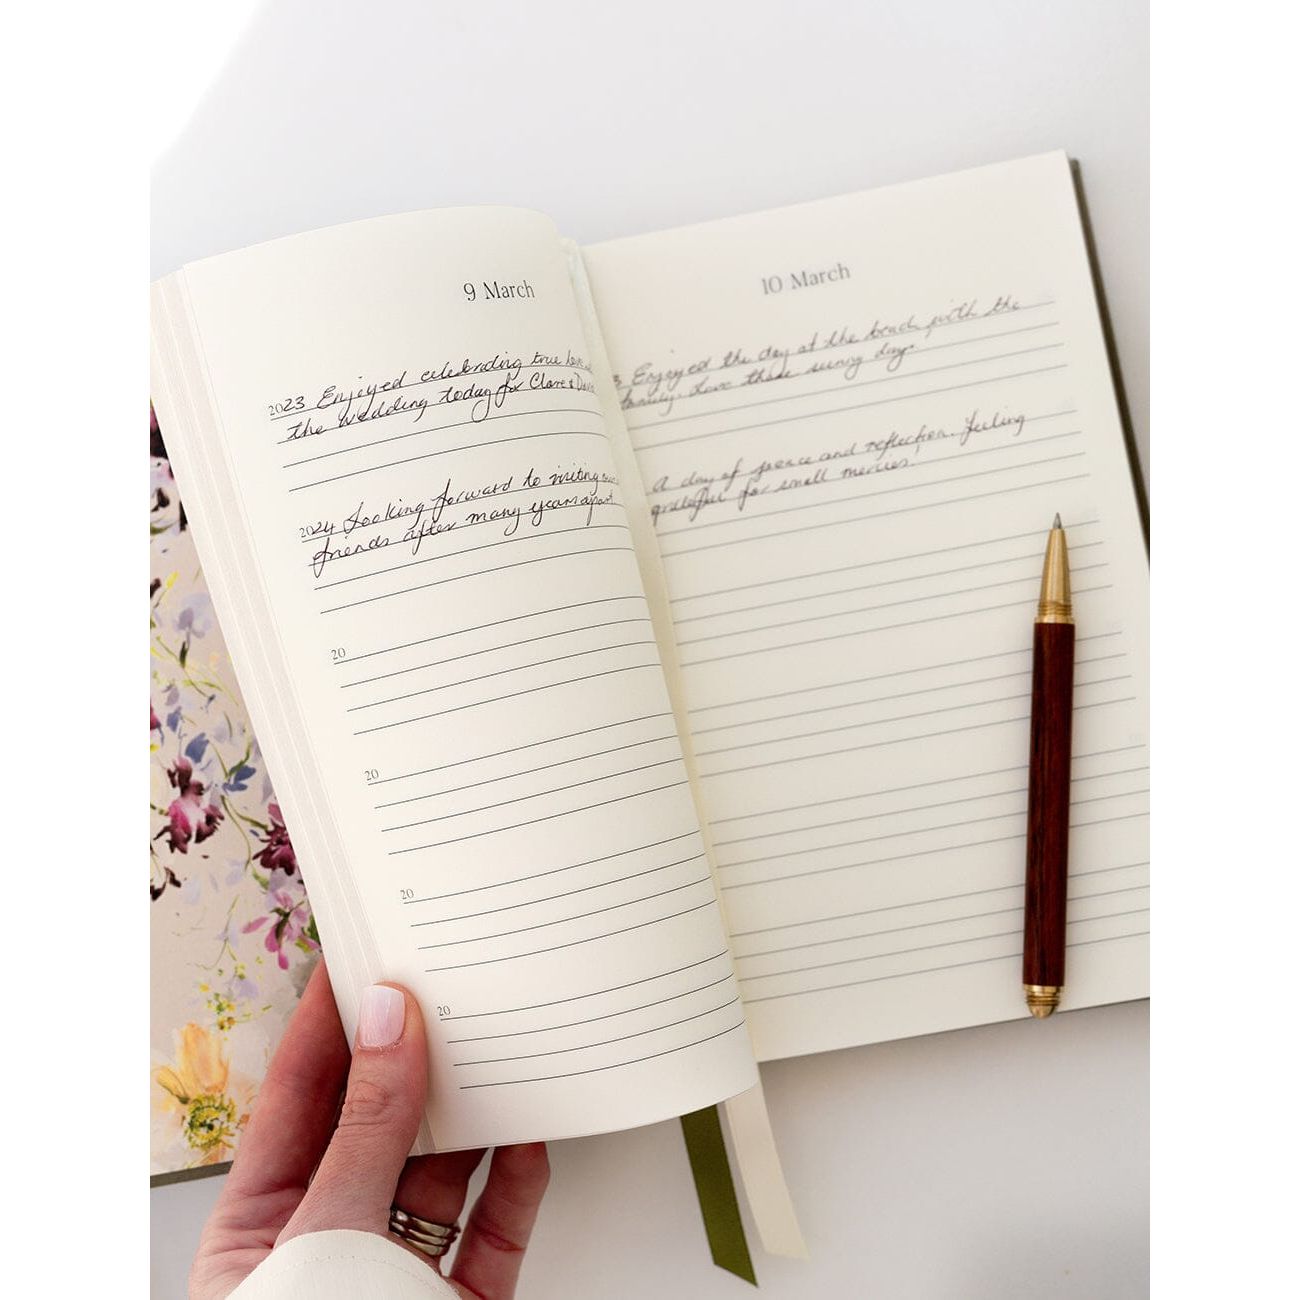 9 March
2023 Enjoyed celebrating true love
the wedding today for Clare &
2024 Looking forward to visiting
friends after many years apart
20
20
20
20
10 March
Enjoyed the day at the beach with the
family. Love these sunny days
A day of peace and reflection. Feeling
grateful for small mercies!